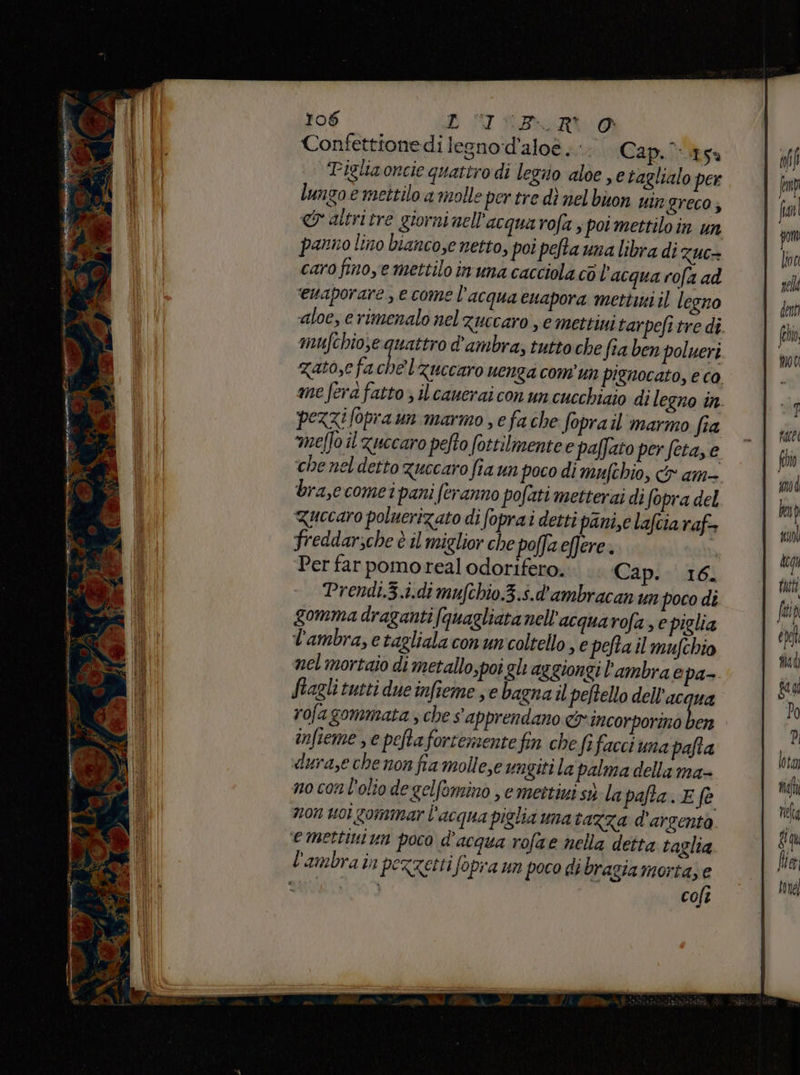 106 L I B R O
Confettione di legno d'aloè. Cap. 15.
Piglia oncie quattro di legno aloe, e taglialo per
lungo e mettilo a molle per tre dì nel buon uin greco,
& altri tre giorni nell'acqua rosa, poi mettilo in un
panno lino bianco, e netto, poi pesta una libra di zuc-
caro fino, e mettilo in una cacciola cō l'acqua rosa ad
euaporare, e come l'acqua euapora mettiui il legno
aloe, e rimenalo nel zuccaro, e mettiui tar pesi tre di
muschio, e quattro d'ambra, tutto che sia ben polueri
zato, e fa che'l zuccaro uenga com'un pignocato, e co
me serà fatto, il cauerai con un cucchiaio di legno in
pezzi sopra un marmo, e fa che sopra il marmo sia
messo il zuccaro pesto sottilmente e passato per seta, e
che nel detto zuccaro sia un poco di muschio, & am-
bra, e come i pani seranno posati metterai di sopra del
zuccaro poluerizato di sopra i detti pani, e lascia raf-
freddar, che è il miglior che possa essere.
Per far pomo real odorifero. Cap. 16.
Prendi.ʒ.i.di muschio.ʒ.s.d'ambracan un poco di
gomma draganti squagliata nell'acqua rosa, e piglia
l'ambra, e tagliala con un coltello, e pesta il muschio
nel mortaio di metallo, poi gli aggiongi l'ambra e pa-
stagli tutti due insieme, e bagna il pestello dell'acqua
rosa gommata, che s'apprendano & incorporino ben
insieme, e pesta fortemente fin che si facci una pasta
dura, e che non sia molle, e ungiti la palma della ma-
no con l'olio de gelsomino, e mettiui sù la pasta. E se
non uoi gommar l'acqua piglia una tazza d'argento
e mettiui un poco d'acqua rosa e nella detta taglia
l'ambra in pezzetti sopra un poco di bragia morta, e
cosi